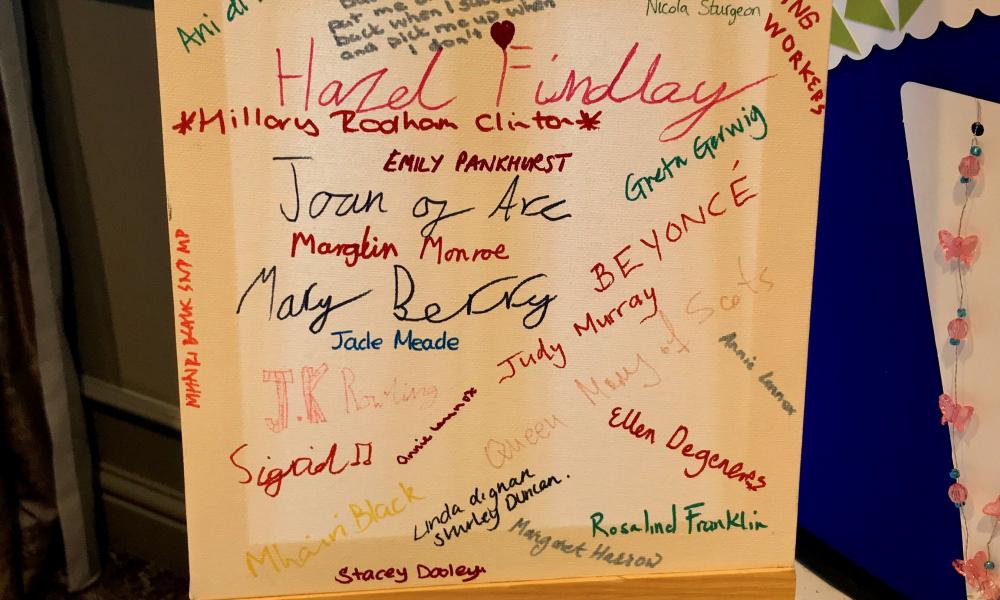 Ani di
Put me
back when I
and pick me up when
I don't
Nicola Sturgeon
WORKERS
Hazel Findlay
*Hillary Rodham Clinton*
EMILY PANKHURST
Greta Gerwig
Joan of Arc
BEYONCÉ
Marylin Monroe
MHAIRI BLACK SNP MP
Mary Berry
Judy Murray
Jade Meade
Queen Mary of Scots
Annie Lennox
J.K Rowling
Annie Lennox
Sigrid
Ellen Degeneres
Mhairi Black
Linda dignan
Shirley Duncan.
Rosalind Franklin
Margaret Hassow
Stacey Dooley